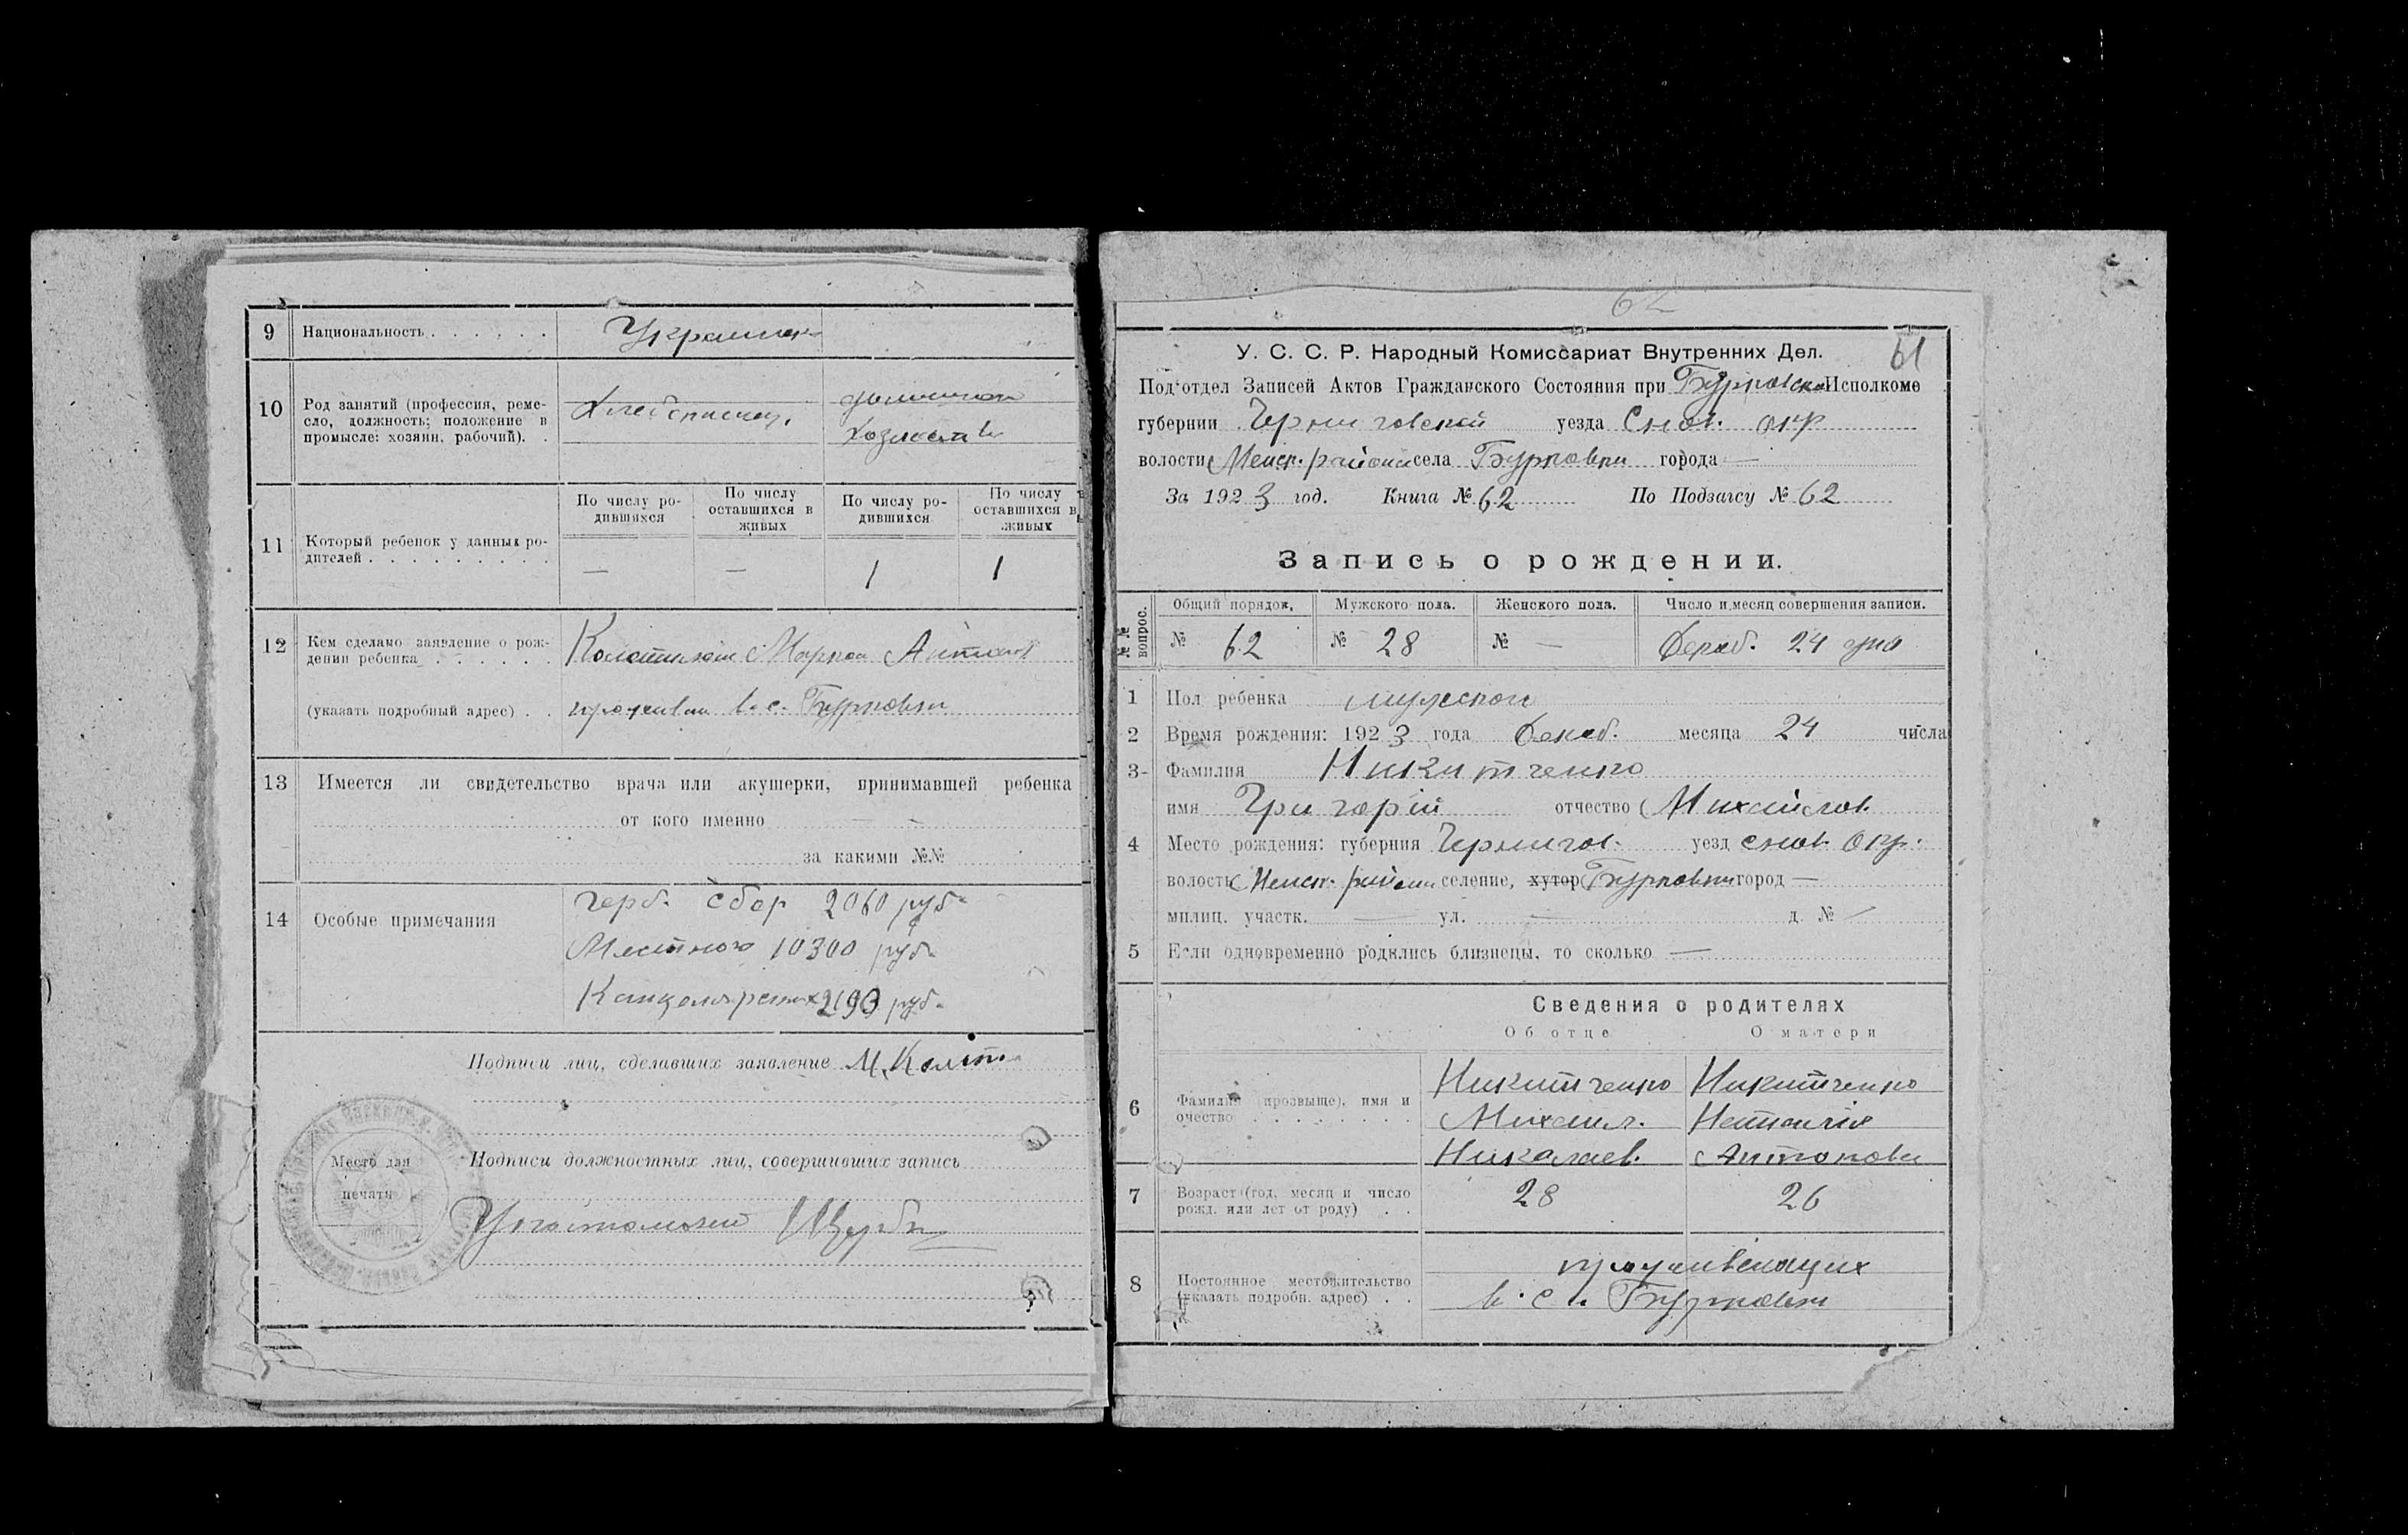 9 Национальность Украинск
10 Род занятий (профессия, реме-
сло, должность; положение в
промысле: хозяин, рабочий).
Хлебопашец домашнем
хозяйств
11 Который ребенок у данных ро-
дителей
По числу ро-
дившихся
По числу
оставшихся в
живых
По числу ро-
дившихся
По числу
оставшихся в
живых
— — 1 1
12 Кем сделано заявление о рож-
дении ребенка Марко Антон
(указать подробный адрес) прожив в с. Бурковки
13 Имеется ли свидетельство врача или акушерки, принимавшей ребенка
от кого именно —
за какими №№
14 Особые примечания
герб. сбор 2060 руб.
Местного 10300 руб.
Канцелярских 2190 руб.
Подписи лиц, сделавших заявление М.
Место для
печати
Подписи должностных лиц, совершивших запись
Щерба
62
61
У. С. С. Р. Народный Комиссариат Внутренних Дел.
Под'отдел Записей Актов Гражданского Состояния при Бурковско Исполкоме
губернии Черниговской уезда Снов. окр
волости Менск. района села Бурковки города —
За 1923 год. Книга № 62 По Подзагсу № 62
Запись о рождении.
№№ вопрос. Общий порядок. Мужского пола. Женского пола. Число и месяц совершения записи.
№ 62 № 28 № — Декаб. 24 дня
1 Пол ребенка мужской
2 Время рождения: 1923 года Декаб. месяца 24 числа
3 Фамилия Никитченко
имя Григорій отчество Михайлов.
4 Место рождения: губерния Чернигов. уезд снов. окр.
волость Менск. района селение, хутор Бурковки город —
милиц. участк. — ул. — д. № —
5 Если одновременно родились близнецы, то сколько —
Сведения о родителях
Об отце О матери
6 Фамилия (прозвыще), имя и
очество
Никитченко Никитченко
Михаил. Наталія
Николаев. Антонова
7 Возраст (год, месяц и число
рожд. или лет от роду)
28 26
8 Постоянное местожительство
(указать подробн. адрес)
проживающих
в. с. Бурковки